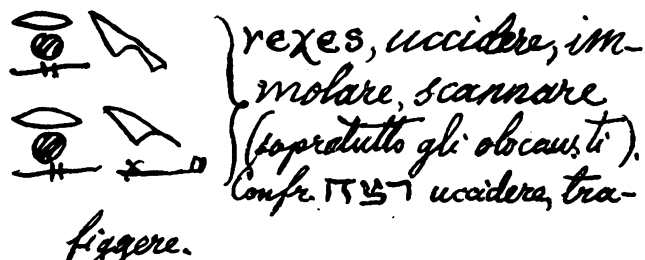 reχes, uccidere, im-
molare, scannare
(sopratutto gli olocausti).
Confr. רצח uccidere, tra-
figgere.